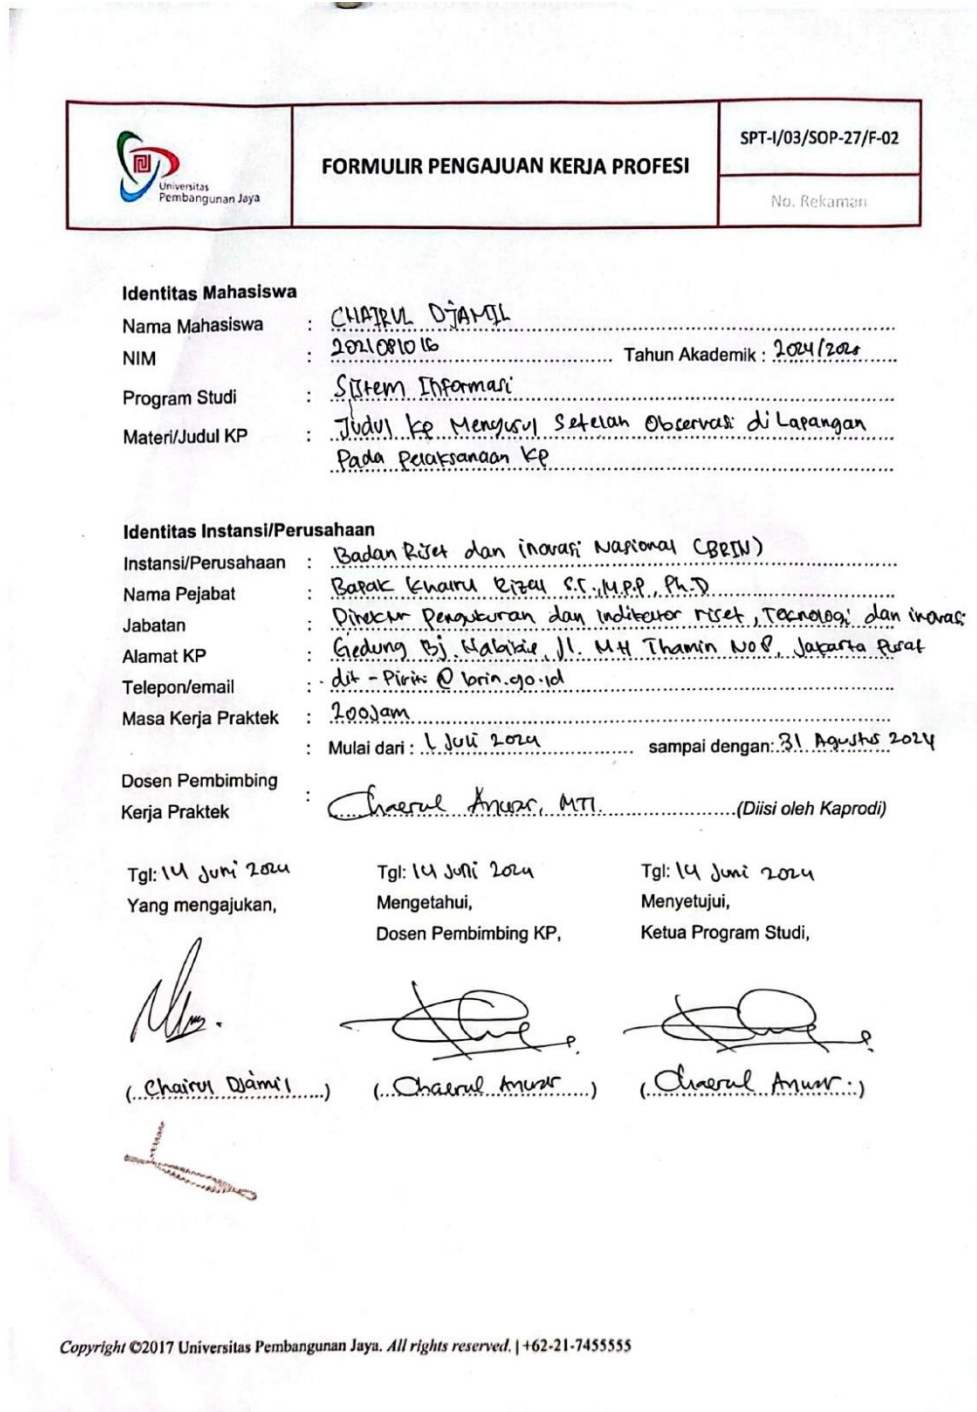 Universitas
Pembangunan Jaya
FORMULIR PENGAJUAN KERJA PROFESI
SPT-I/03/SOP-27/F-02
No. Rekaman
Identitas Mahasiswa
Nama Mahasiswa : CHAIRUL DJAMIL
NIM : 2021081016 Tahun Akademik : 2024/2025
Program Studi : Sistem Informasi
Materi/Judul KP : Judul KP Menyusul Setelah Observasi di Lapangan
Pada Pelaksanaan KP
Identitas Instansi/Perusahaan
Instansi/Perusahaan : Badan Riset dan inovasi Nasional (BRIN)
Nama Pejabat : Bapak Khairu Rizal S.T., M.P.P, Ph.D
Jabatan : Direktur Pengukuran dan Indikator riset, Teknologi dan inovasi
Alamat KP : Gedung Bj. Habibie, Jl. MH Thamin No 8, Jakarta Pusat
Telepon/email : dit - Pirin @ brin.go.id
Masa Kerja Praktek : 200Jam
: Mulai dari : 1 Juli 2024 sampai dengan: 31 Agustus 2024
Dosen Pembimbing
Kerja Praktek : Chaerul Anwar, MTI. (Diisi oleh Kaprodi)
Tgl: 14 Juni 2024 Tgl: 14 Juni 2024 Tgl: 14 Juni 2024
Yang mengajukan, Mengetahui, Menyetujui,
Dosen Pembimbing KP, Ketua Program Studi,
(Chairul Djamil) (Chaerul Anwar) (Chaerul Anwar)
Copyright ©2017 Universitas Pembangunan Jaya. All rights reserved. | +62-21-7455555